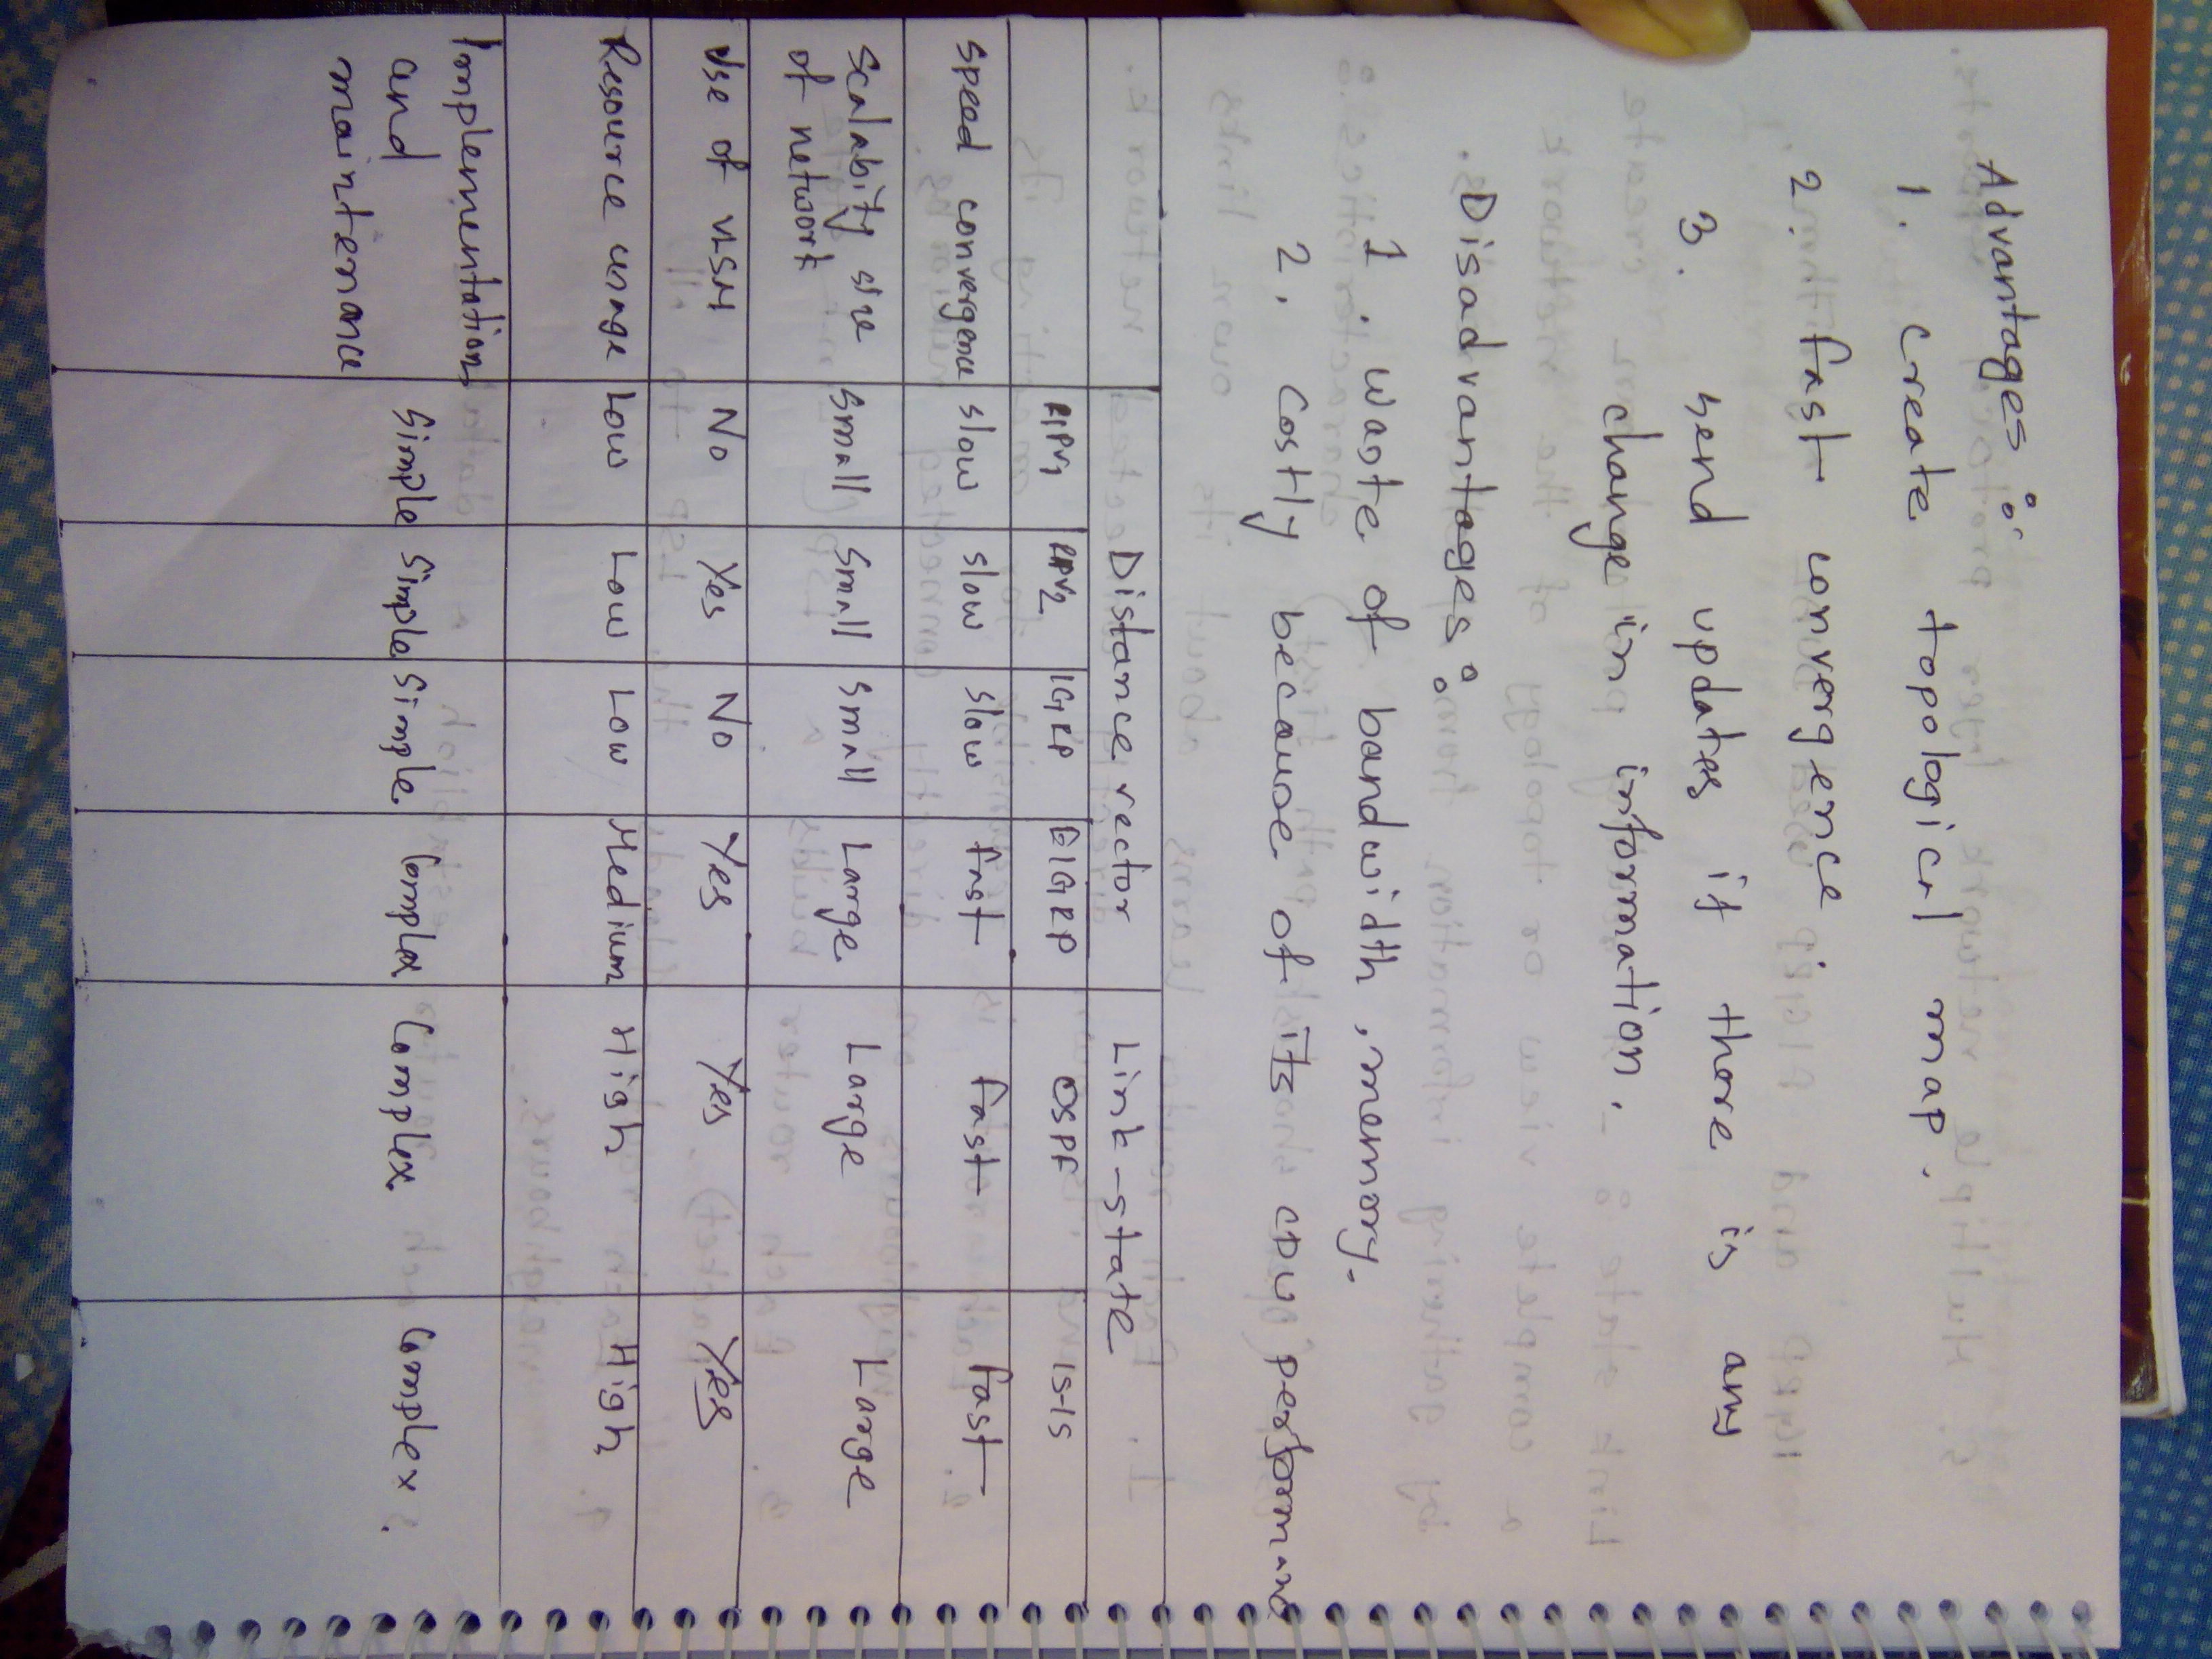 Advantages :-
1. Create topological map.
2. fast convergence.
3. send updates if there is any
change in information.
Disadvantages :
1. Waste of bandwidth, memory.
2. Costly because of its CPU performanc
Distance vector Link-state
RIPv1 RIPv2 IGRP EIGRP OSPF IS-IS
Speed convergence slow slow slow fast fast fast
Scalabity size
of network Small Small Small Large Large Large
Use of VLSM No Yes No Yes Yes Yes
Resource usage Low Low Low Medium High High
Implementation
and Simple Simple Simple Complex Complex Complex.
maintenance